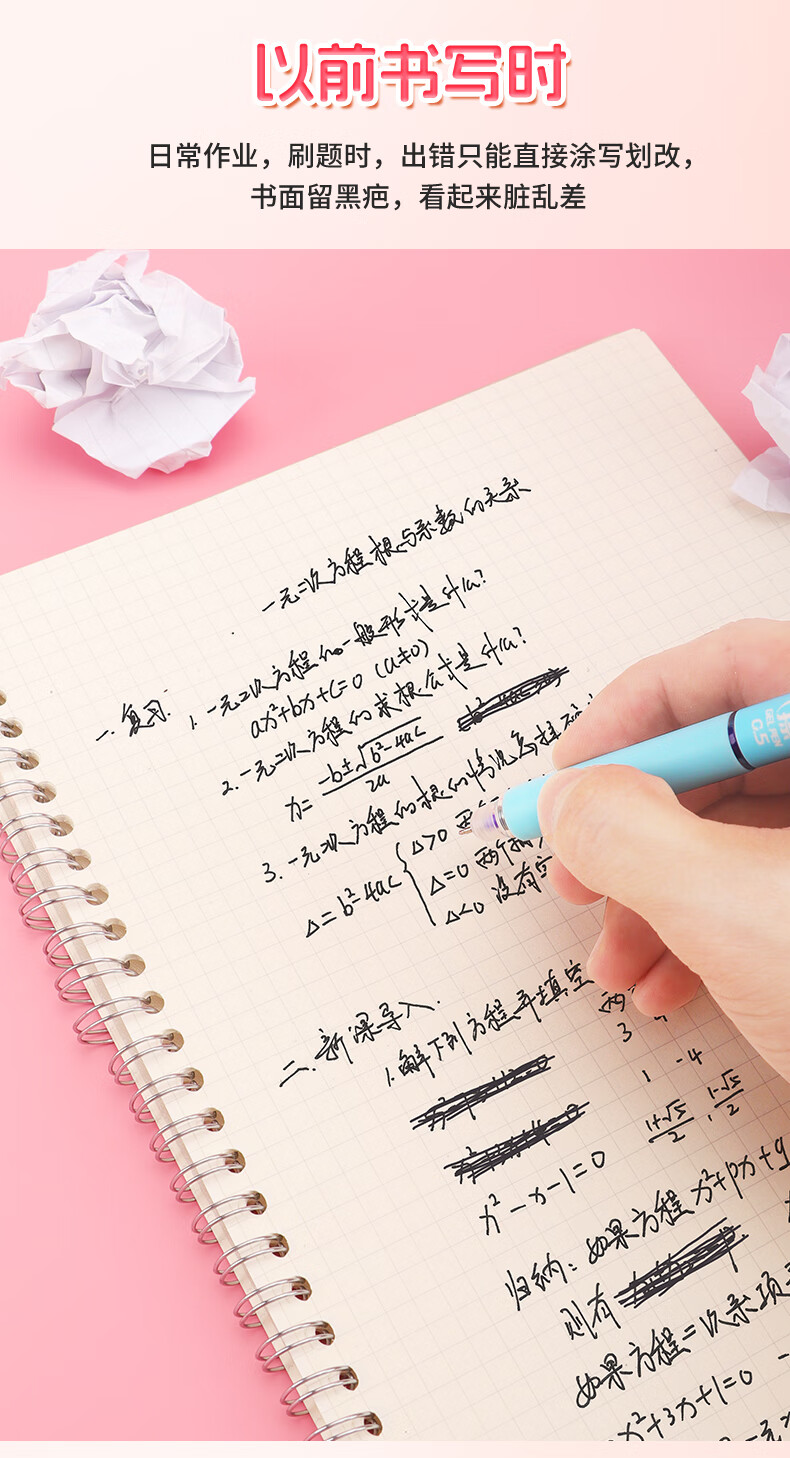 以前书写时
日常作业，刷题时，出错只能直接涂写划改，
书面留黑疤，看起来脏乱差
一元二次方程根与系数的关系
一.复习.
1.一元二次方程的一般形式是什么?
ax²+bx+c=0 (a≠0)
2.一元二次方程的求根公式是什么?
x=(-b±√(b²-4ac))/2a
3.一元二次方程的根的情况怎样
Δ=b²-4ac { Δ>0 两个
Δ=0 两个
Δ<0 没有实
GEL PEN 0.5
二.新课导入.
1.解下列方程并填空
两
3 4
1 -4
x²-x-1=0
(1+√5)/2, (1-√5)/2
归纳: 如果方程x²+px+q
则有
如果方程二次系项
x²+3x+1=0